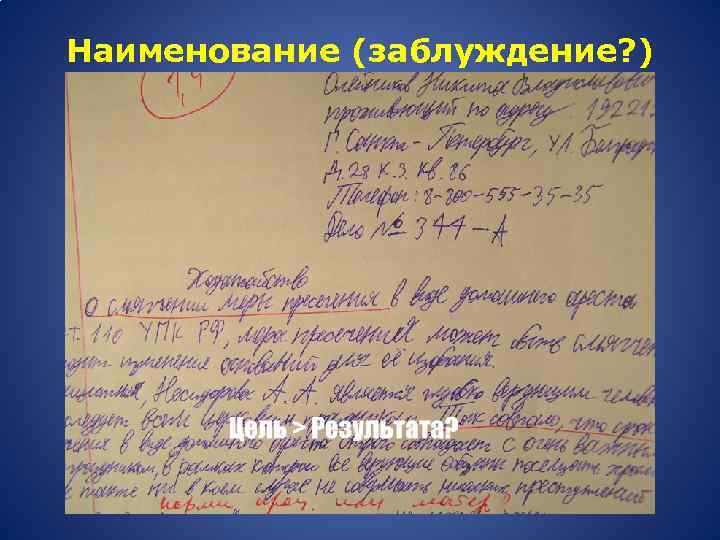 Наименование (заблуждение?)
1,4
Олейников Никита Владиславович
проживающий по адресу: 19221
Г. Санкт-Петербург, ул. Белград
Д. 28 К. 3. Кв. 86
Телефон: 8-800-555-35-35
Дело № 344-А
Ходатайство
О смягчении меры пресечения в виде домашнего ареста
110 УПК РФ, мера пресечения может быть смягчен
изменение оснований для её избрания.
Несидорова А. А. является глубоко верующим челове
следует всем церковным Так совпало, что срок
в виде домашнего ареста строго совпадает с очень важны
праздником, в рамках которого все верующие обязаны посещать храм
а также ни в коем случае не совершать никаких преступлений
Цель > Результата?
нормы права или мабер?